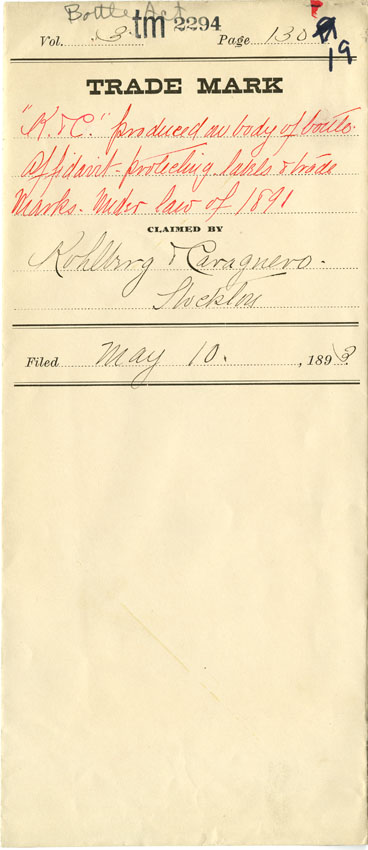 Bottle Act
Vol. 3. tm 2294 Page 130
19
TRADE MARK
"K. & C." produced on body of bottle.
Affidavit - protecting labels & trade
Marks. Under law of 1891
CLAIMED BY
Kohlberg & Cavagnero.
Stockton
Filed May 10. , 1893.